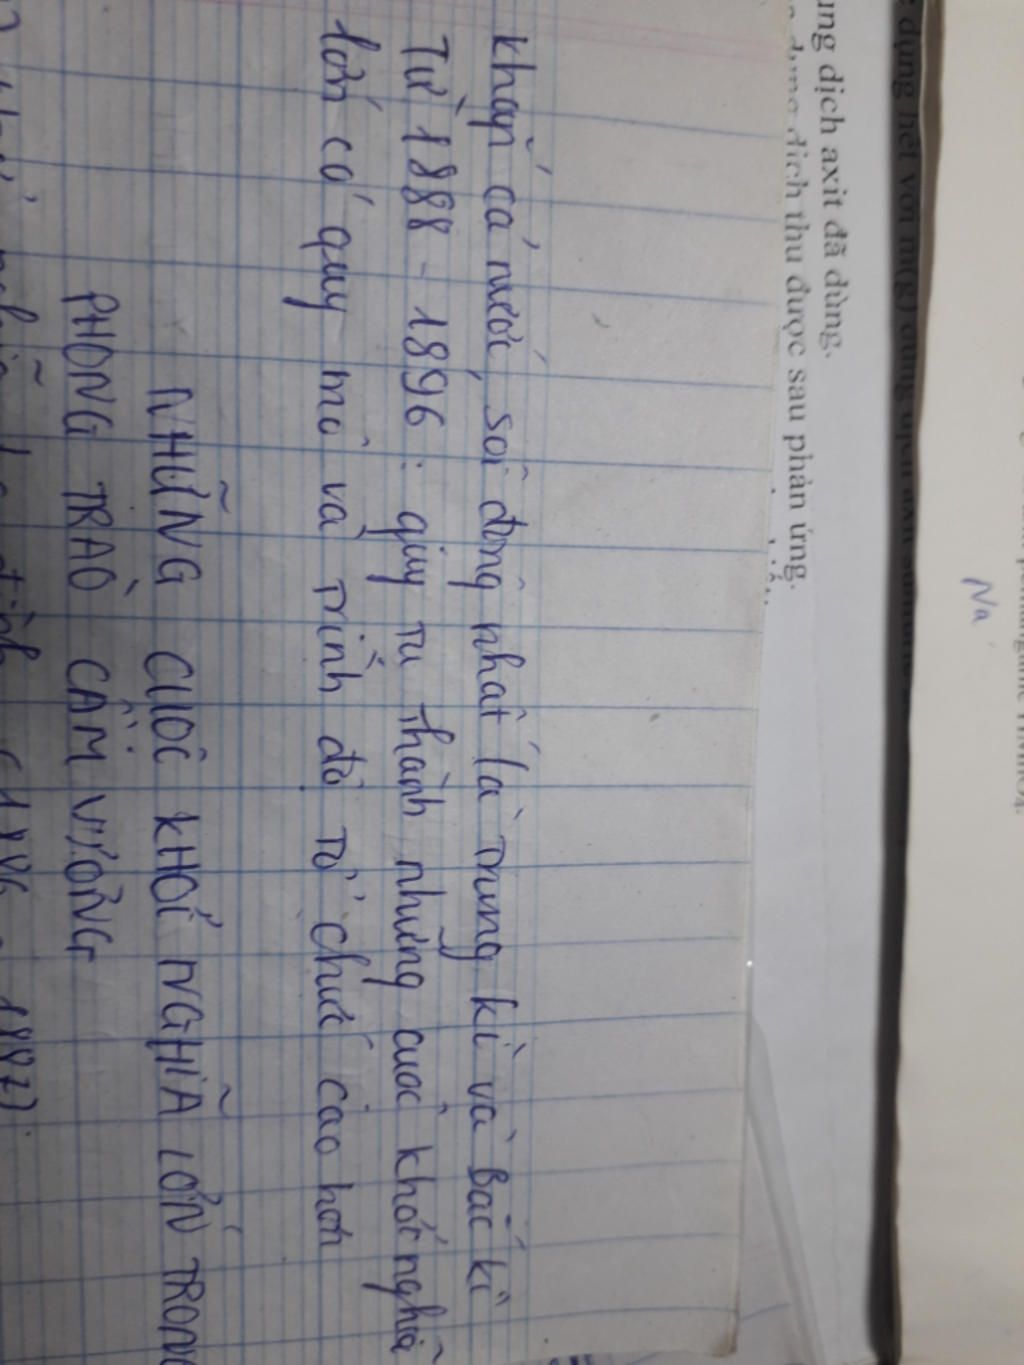 dụng hết với m(g) dung dịch axit sunfuric
ung dịch axit đã dùng.
dung dịch thu được sau phản ứng.
Na
khắp cả nước, sôi động nhất là Trung kì và Bắc kì
Từ 1888 - 1896 : quy tụ thành những cuộc khởi nghĩa
lớn có quy mô và trình độ tổ chức cao hơn
NHỮNG CUỘC KHỞI NGHĨA LỚN TRONG
PHONG TRÀO CẦN VƯƠNG